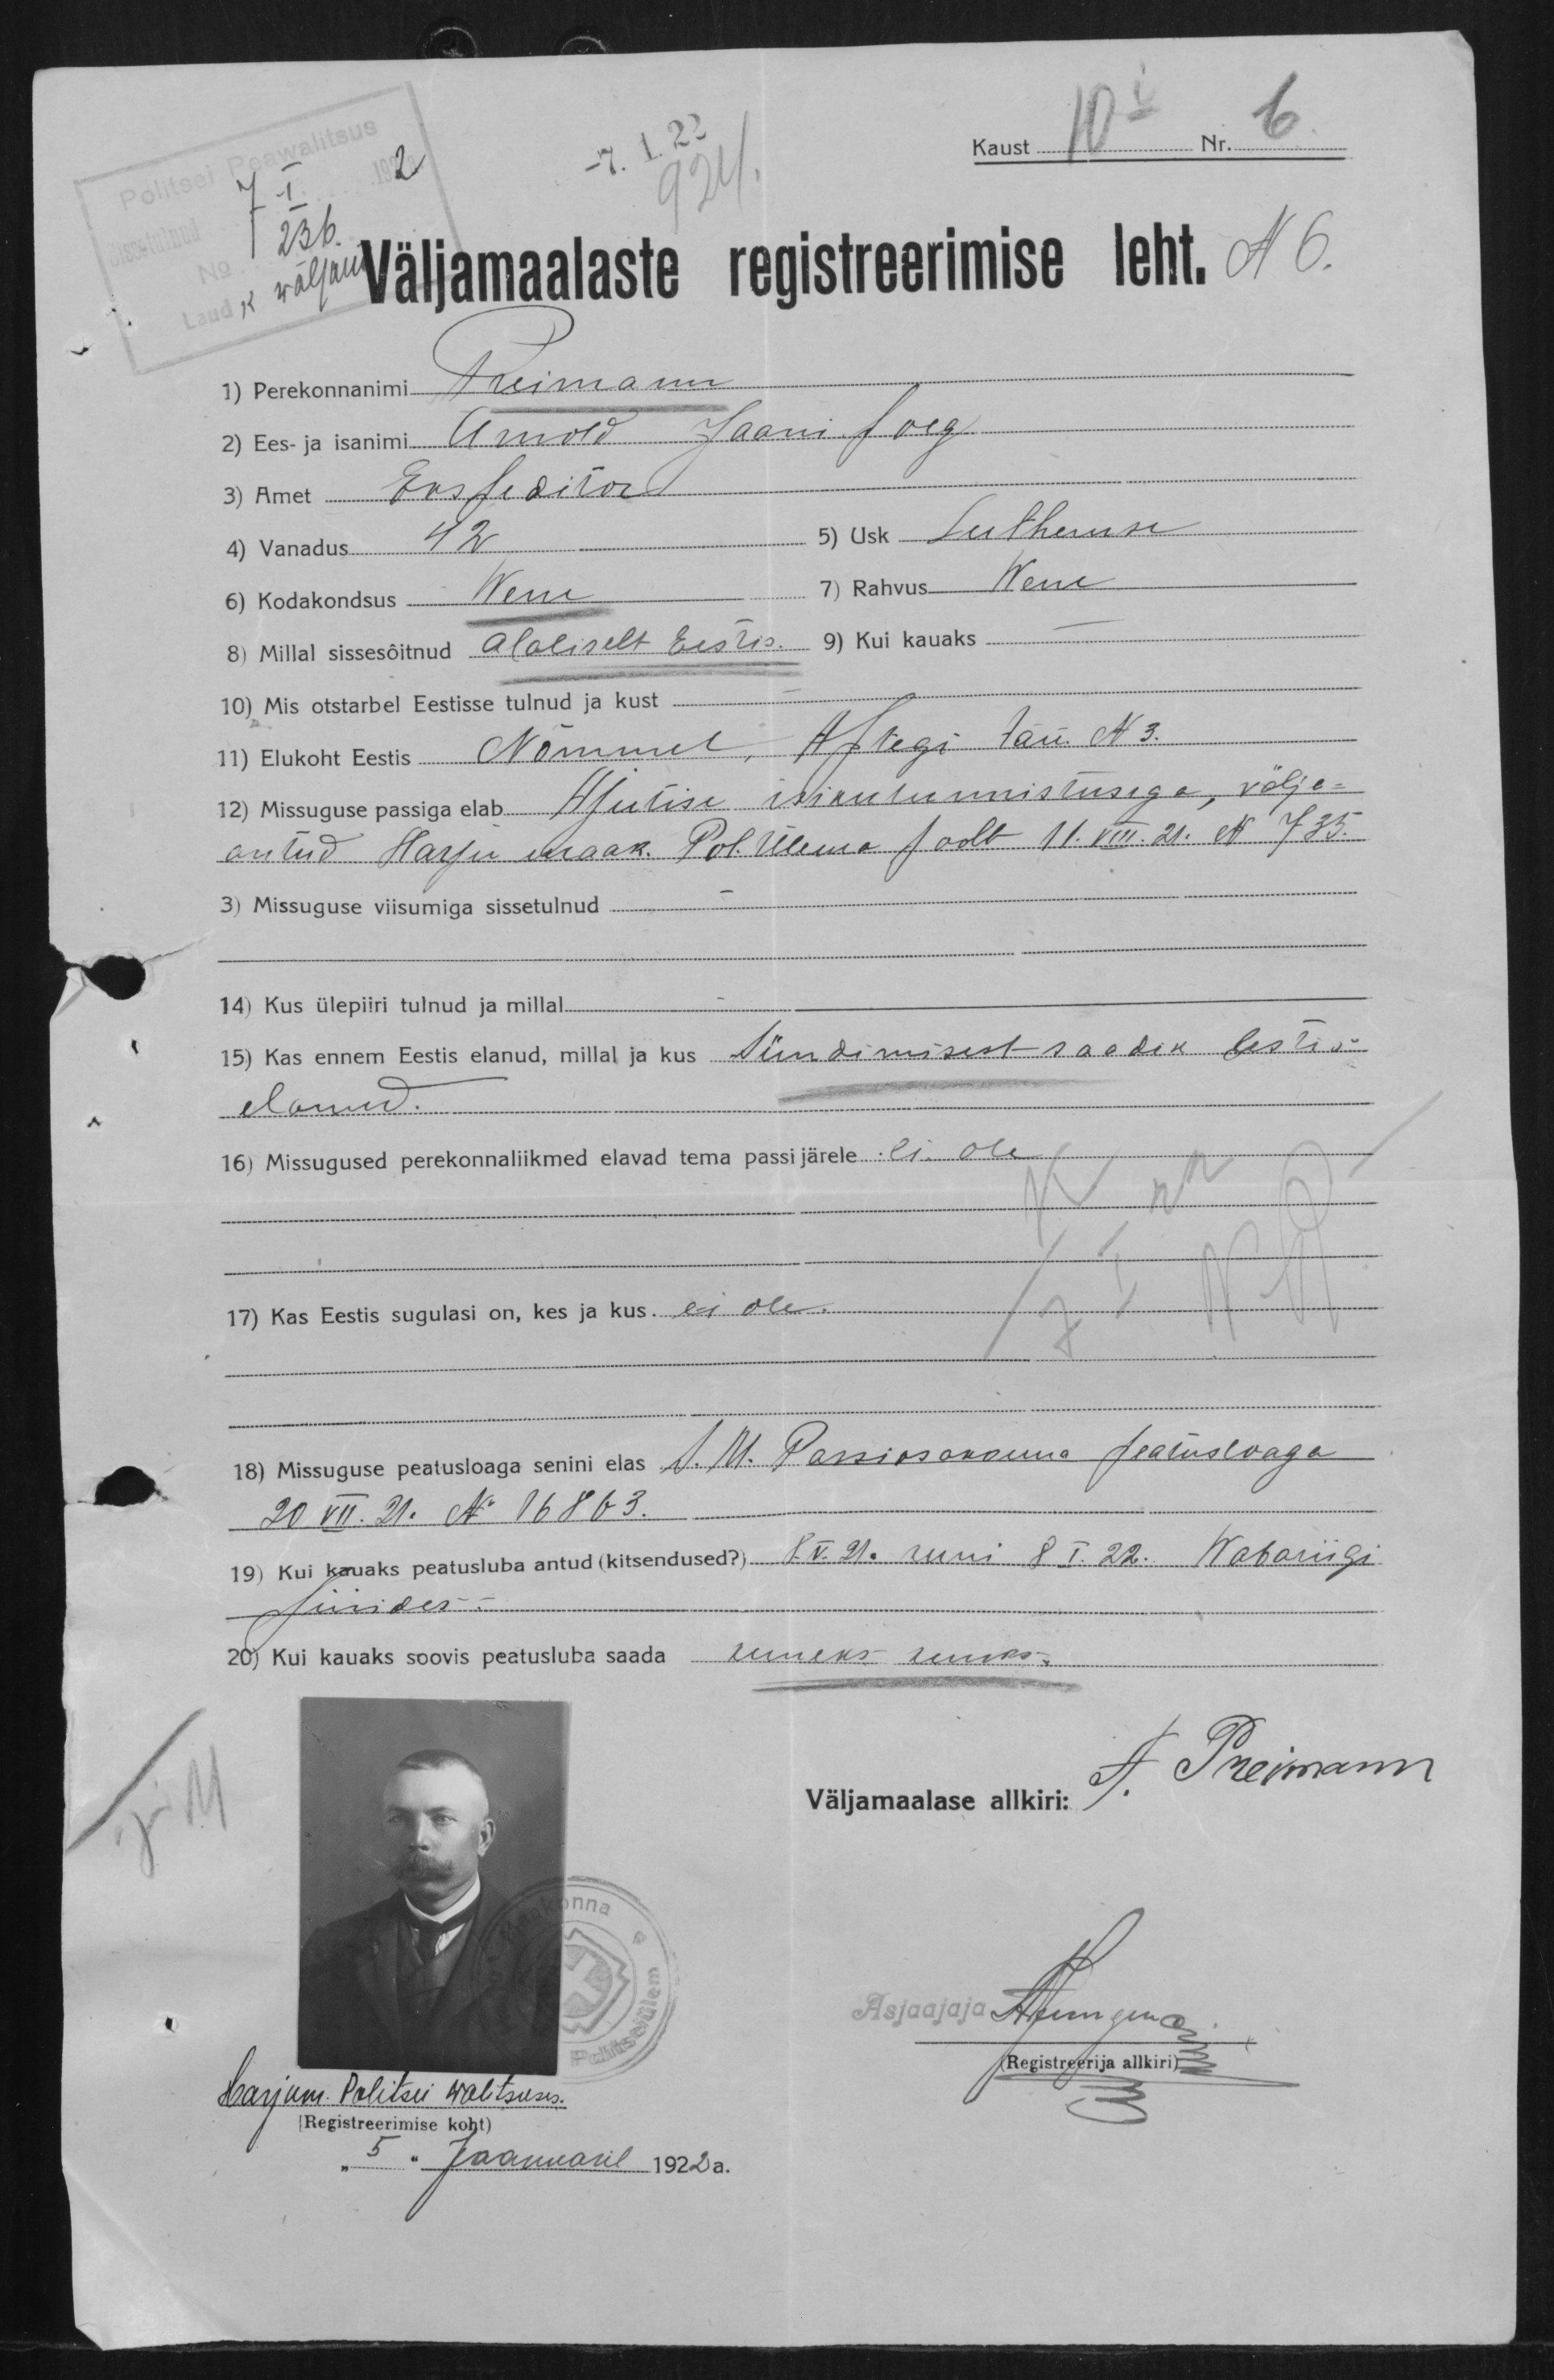 Politsei Peawalitsus
Sissetulnud 7 I 1922
No 236.
Laud K väljam
-7. 1. 22
924.
Kaust 10 I Nr. 6.
Väljamaalaste registreerimise leht. N 6.
1) Perekonnanimi Preimann
2) Ees- ja isanimi Arnold Jaani poeg
3) Amet Ekspeditor
4) Vanadus 42 5) Usk Lutheruse
6) Kodakondsus Wene 7) Rahvus Wene
8) Millal sissesõitnud alaliselt Eestis. 9) Kui kauaks —
10) Mis otstarbel Eestisse tulnud ja kust —
11) Elukoht Eestis Nõmmel, tän. N 3.
12) Missuguse passiga elab Ajutise isikutunnistusega, välja=
antud Harju maak. Pol. Ülema poolt 11. VIII. 21. N 735.
3) Missuguse viisumiga sissetulnud —
14) Kus ülepiiri tulnud ja millal -
15) Kas ennem Eestis elanud, millal ja kus Sündimisest saadik Eestis
elanud.
16) Missugused perekonnaliikmed elavad tema passi järele ei ole
17) Kas Eestis sugulasi on, kes ja kus. ei ole.
18) Missuguse peatusloaga senini elas S. M. Passiosakonna peatusloaga
20 VII. 21. No 16863.
19) Kui kauaks peatusluba antud (kitsendused?) 8. V. 21. kuni 8 I. 22. Wabariigi
piirides.
20) Kui kauaks soovis peatusluba saada kuueks kuuks.
Väljamaalase allkiri: A. Preimann
Maakonna
Politseiülem
Asjaajaja
(Registreerija allkiri)
Harjum. Politsei walitsuses.
(Registreerimise koht)
„ 5 " Jaanuaril 1922 a.